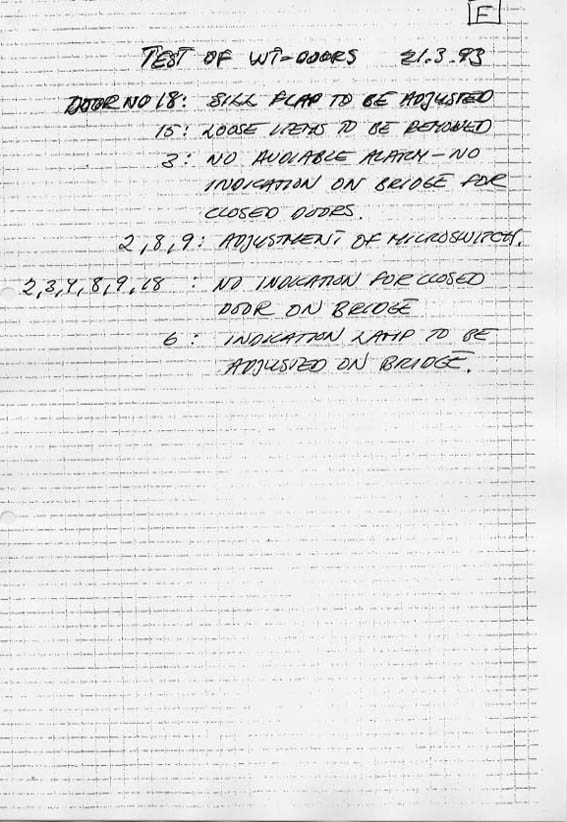 E
TEST OF WT-DOORS 21.3.93
DOOR NO 18: SILL FLAP TO BE ADJUSTED
15: LOOSE ITEMS TO BE REMOVED
3: NO AUDIABLE ALARM-NO
INDICATION ON BRIDGE FOR
CLOSED DOORS.
2,8,9: ADJUSTMENT OF MICROSWITCH.
2,3,4,8,9,18 : NO INDICATION FOR CLOSED
DOOR ON BRIDGE
6: INDICATION LAMP TO BE
ADJUSTED ON BRIDGE.